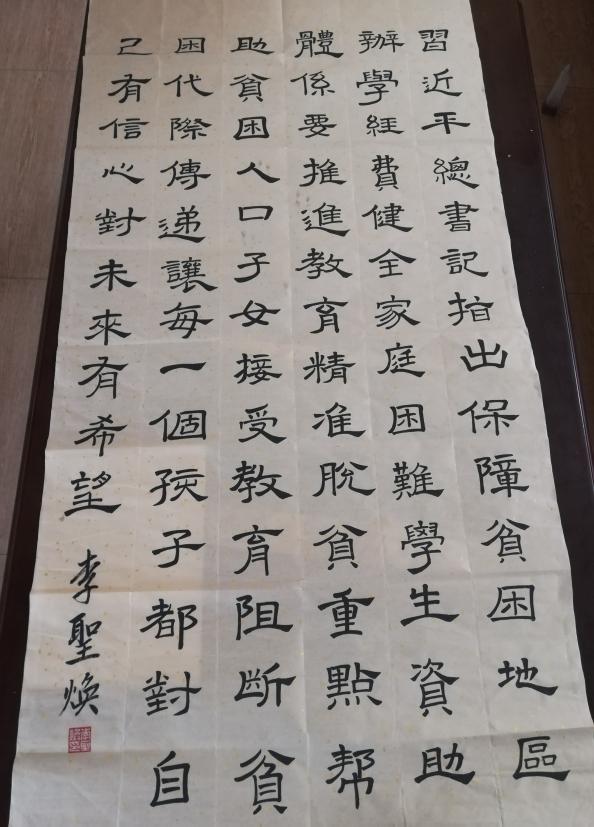 習近平總書記指出保障貧困地區
辦學經費健全家庭困難學生資助
體係要推進教育精准脫貧重點帮
助貧困人口子女接受教育阻斷貧
困代際傳遞讓每一個孩子都對自
己有信心對未來有希望
李聖煥